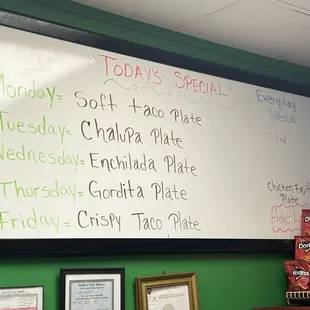 "TODAY'S SPECIAL"
Monday = Soft taco Plate
Tuesday = Chalupa Plate
Wednesday = Enchilada Plate
Thursday = Gordita Plate
Friday = Crispy Taco Plate
Everyday
Special
Chicken
Plate